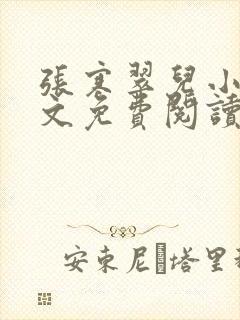 張寒翠兒小
文免費閱讀
安東尼·塔里